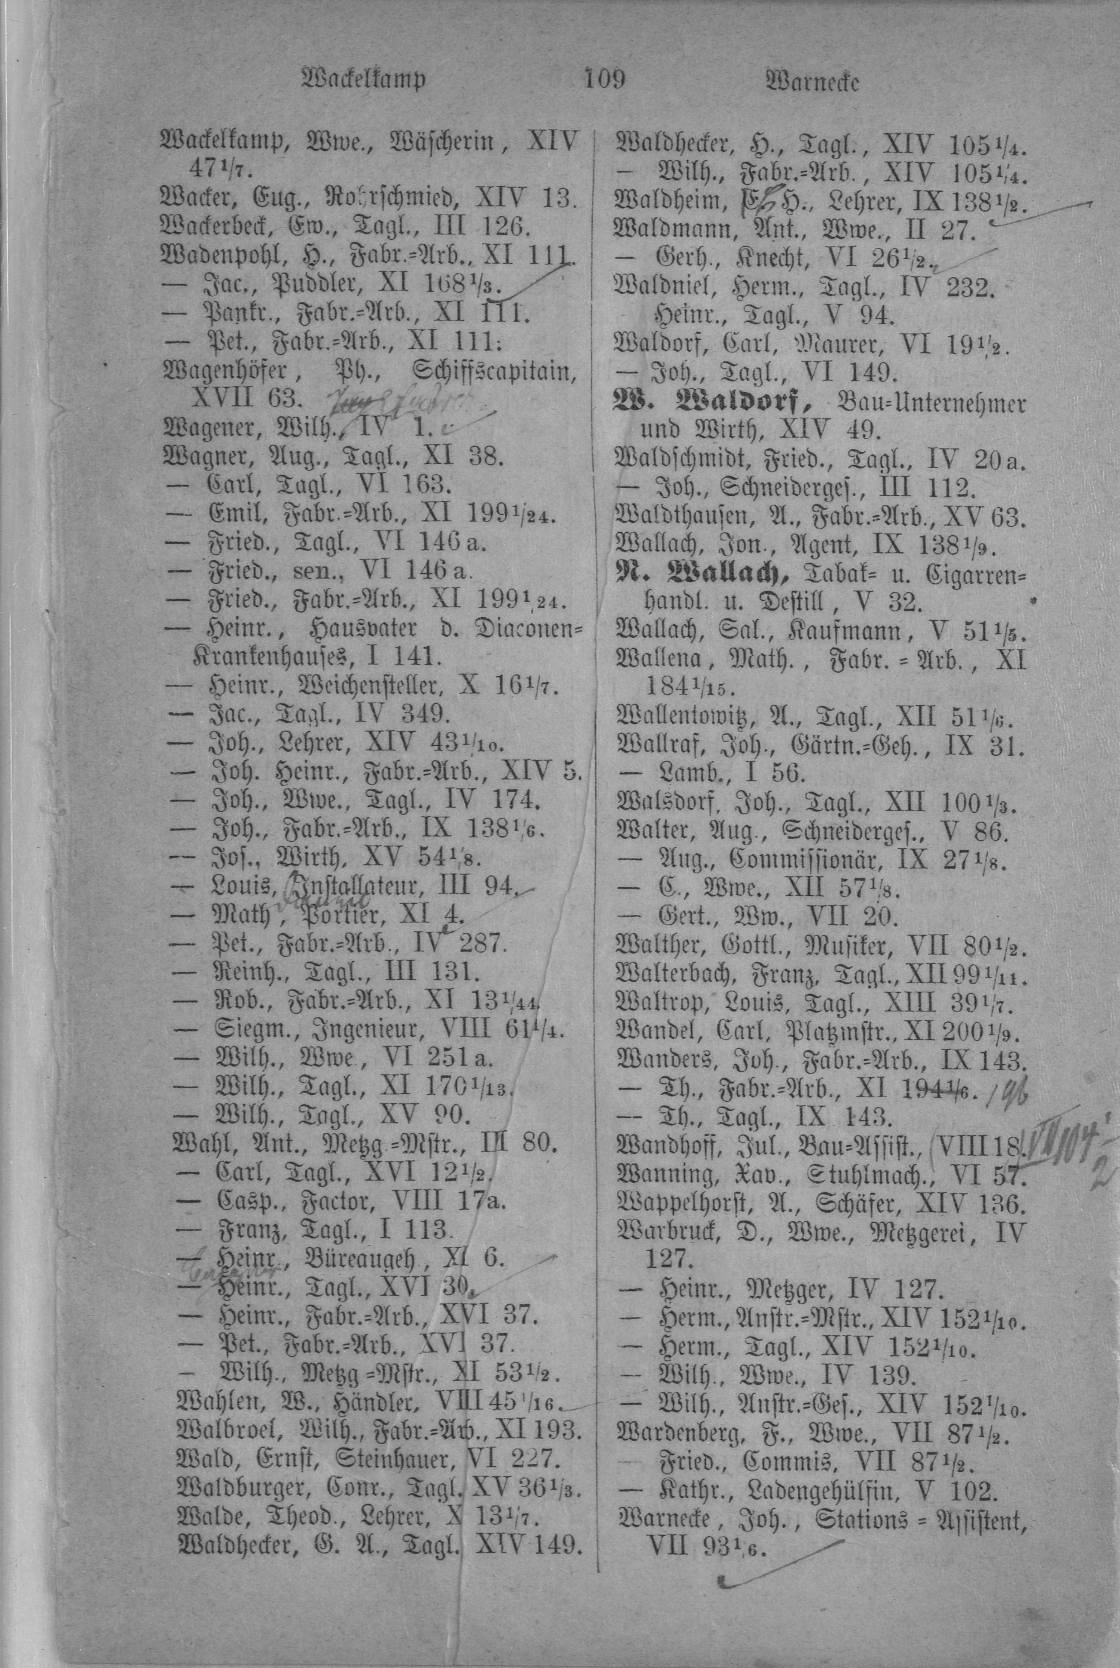 Wackelkamp 109 Warnecke
Wackelkamp, Wwe., Wäscherin, XIV
47 1/7.
Wacker, Eug., Rohrschmied, XIV 13.
Wackerbeck, Ew., Tagl., III 126.
Wadenpohl, H., Fabr.=Arb., XI 111.
— Jac., Puddler, XI 168 1/3.
— Pankr., Fabr.=Arb., XI 111.
— Pet., Fabr.=Arb., XI 111.
Wagenhöfer, Ph., Schiffscapitain,
XVII 63.
Wagener, Wilh., IV 1.
Wagner, Aug., Tagl., XI 38.
— Carl, Tagl., VI 163.
— Emil, Fabr.=Arb., XI 199 1/24.
— Fried., Tagl., VI 146 a.
— Fried., sen., VI 146 a.
— Fried., Fabr.=Arb., XI 199 1/24.
— Heinr., Hausvater d. Diaconen=
Krankenhauses, I 141.
— Heinr., Weichensteller, X 16 1/7.
— Jac., Tagl., IV 349.
— Joh., Lehrer, XIV 43 1/10.
— Joh. Heinr., Fabr.=Arb., XIV 5.
— Joh., Wwe., Tagl., IV 174.
— Joh., Fabr.=Arb., IX 138 1/6.
— Jos., Wirth, XV 54 1/8.
— Louis, Installateur, III 94.
— Math., Portier, XI 4.
— Pet., Fabr.=Arb., IV 287.
— Reinh., Tagl., III 131.
— Rob., Fabr.=Arb., XI 13 1/44.
— Siegm., Ingenieur, VIII 61 1/4.
— Wilh., Wwe., VI 251 a.
— Wilh., Tagl., XI 170 1/13.
— Wilh., Tagl., XV 90.
Wahl, Ant., Metzg.=Mstr., III 80.
— Carl, Tagl., XVI 12 1/2.
— Casp., Factor, VIII 17a.
— Franz, Tagl., I 113.
— Heinr., Büreaugeh., XI 6.
— Heinr., Tagl., XVI 30.
— Heinr., Fabr.=Arb., XVI 37.
— Pet., Fabr.=Arb., XVI 37.
— Wilh., Metzg.=Mstr., XI 53 1/2.
Wahlen, W., Händler, VIII 45 1/16.
Walbroel, Wilh., Fabr.=Arb., XI 193.
Wald, Ernst, Steinhauer, VI 227.
Waldburger, Conr., Tagl. XV 36 1/3.
Walde, Theod., Lehrer, X 13 1/7.
Waldhecker, G. A., Tagl. XIV 149.
Waldhecker, H., Tagl., XIV 105 1/4.
— Wilh., Fabr.=Arb., XIV 105 1/4.
Waldheim, H., Lehrer, IX 138 1/2.
Waldmann, Ant., Wwe., II 27.
— Gerh., Knecht, VI 26 1/2.
Waldniel, Herm., Tagl., IV 232.
Heinr., Tagl., V 94.
Waldorf, Carl, Maurer, VI 19 1/2.
— Joh., Tagl., VI 149.
W. Waldorf, Bau=Unternehmer
und Wirth, XIV 49.
Waldschmidt, Fried., Tagl., IV 20 a.
— Joh., Schneiderges., III 112.
Waldthausen, A., Fabr.=Arb., XV 63.
Wallach, Jon., Agent, IX 138 1/9.
N. Wallach, Tabak= u. Cigarren=
handl. u. Destill, V 32.
Wallach, Sal., Kaufmann, V 51 1/5.
Wallena, Math., Fabr.=Arb., XI
184 1/15.
Wallentowitz, A., Tagl., XII 51 1/6.
Wallraf, Joh., Gärtn.=Geh., IX 31.
— Lamb., I 56.
Walsdorf, Joh., Tagl., XII 100 1/3.
Walter, Aug., Schneiderges., V 86.
— Aug., Commissionär, IX 27 1/8.
— C., Wwe., XII 57 1/8.
— Gert., Ww., VII 20.
Walther, Gottl., Musiker, VII 80 1/2.
Walterbach, Franz, Tagl., XII 99 1/11.
Waltrop, Louis, Tagl., XIII 39 1/7.
Wandel, Carl, Platzmstr., XI 200 1/9.
Wanders, Joh., Fabr.=Arb., IX 143.
— Th., Fabr.=Arb., XI 194 1/6. 196
— Th., Tagl., IX 143.
Wandhoff, Jul., Bau=Assist., VIII 18. VII 104 1/2
Wanning, Xav., Stuhlmach., VI 57.
Wappelhorst, A., Schäfer, XIV 136.
Warbruck, D., Wwe., Metzgerei, IV
127.
— Heinr., Metzger, IV 127.
— Herm., Anstr.=Mstr., XIV 152 1/10.
— Herm., Tagl., XIV 152 1/10.
— Wilh., Wwe., IV 139.
— Wilh., Anstr.=Ges., XIV 152 1/10.
Wardenberg, F., Wwe., VII 87 1/2.
— Fried., Commis, VII 87 1/2.
— Kathr., Ladengehülfin, V 102.
Warnecke, Joh., Stations=Assistent,
VII 93 1/6.